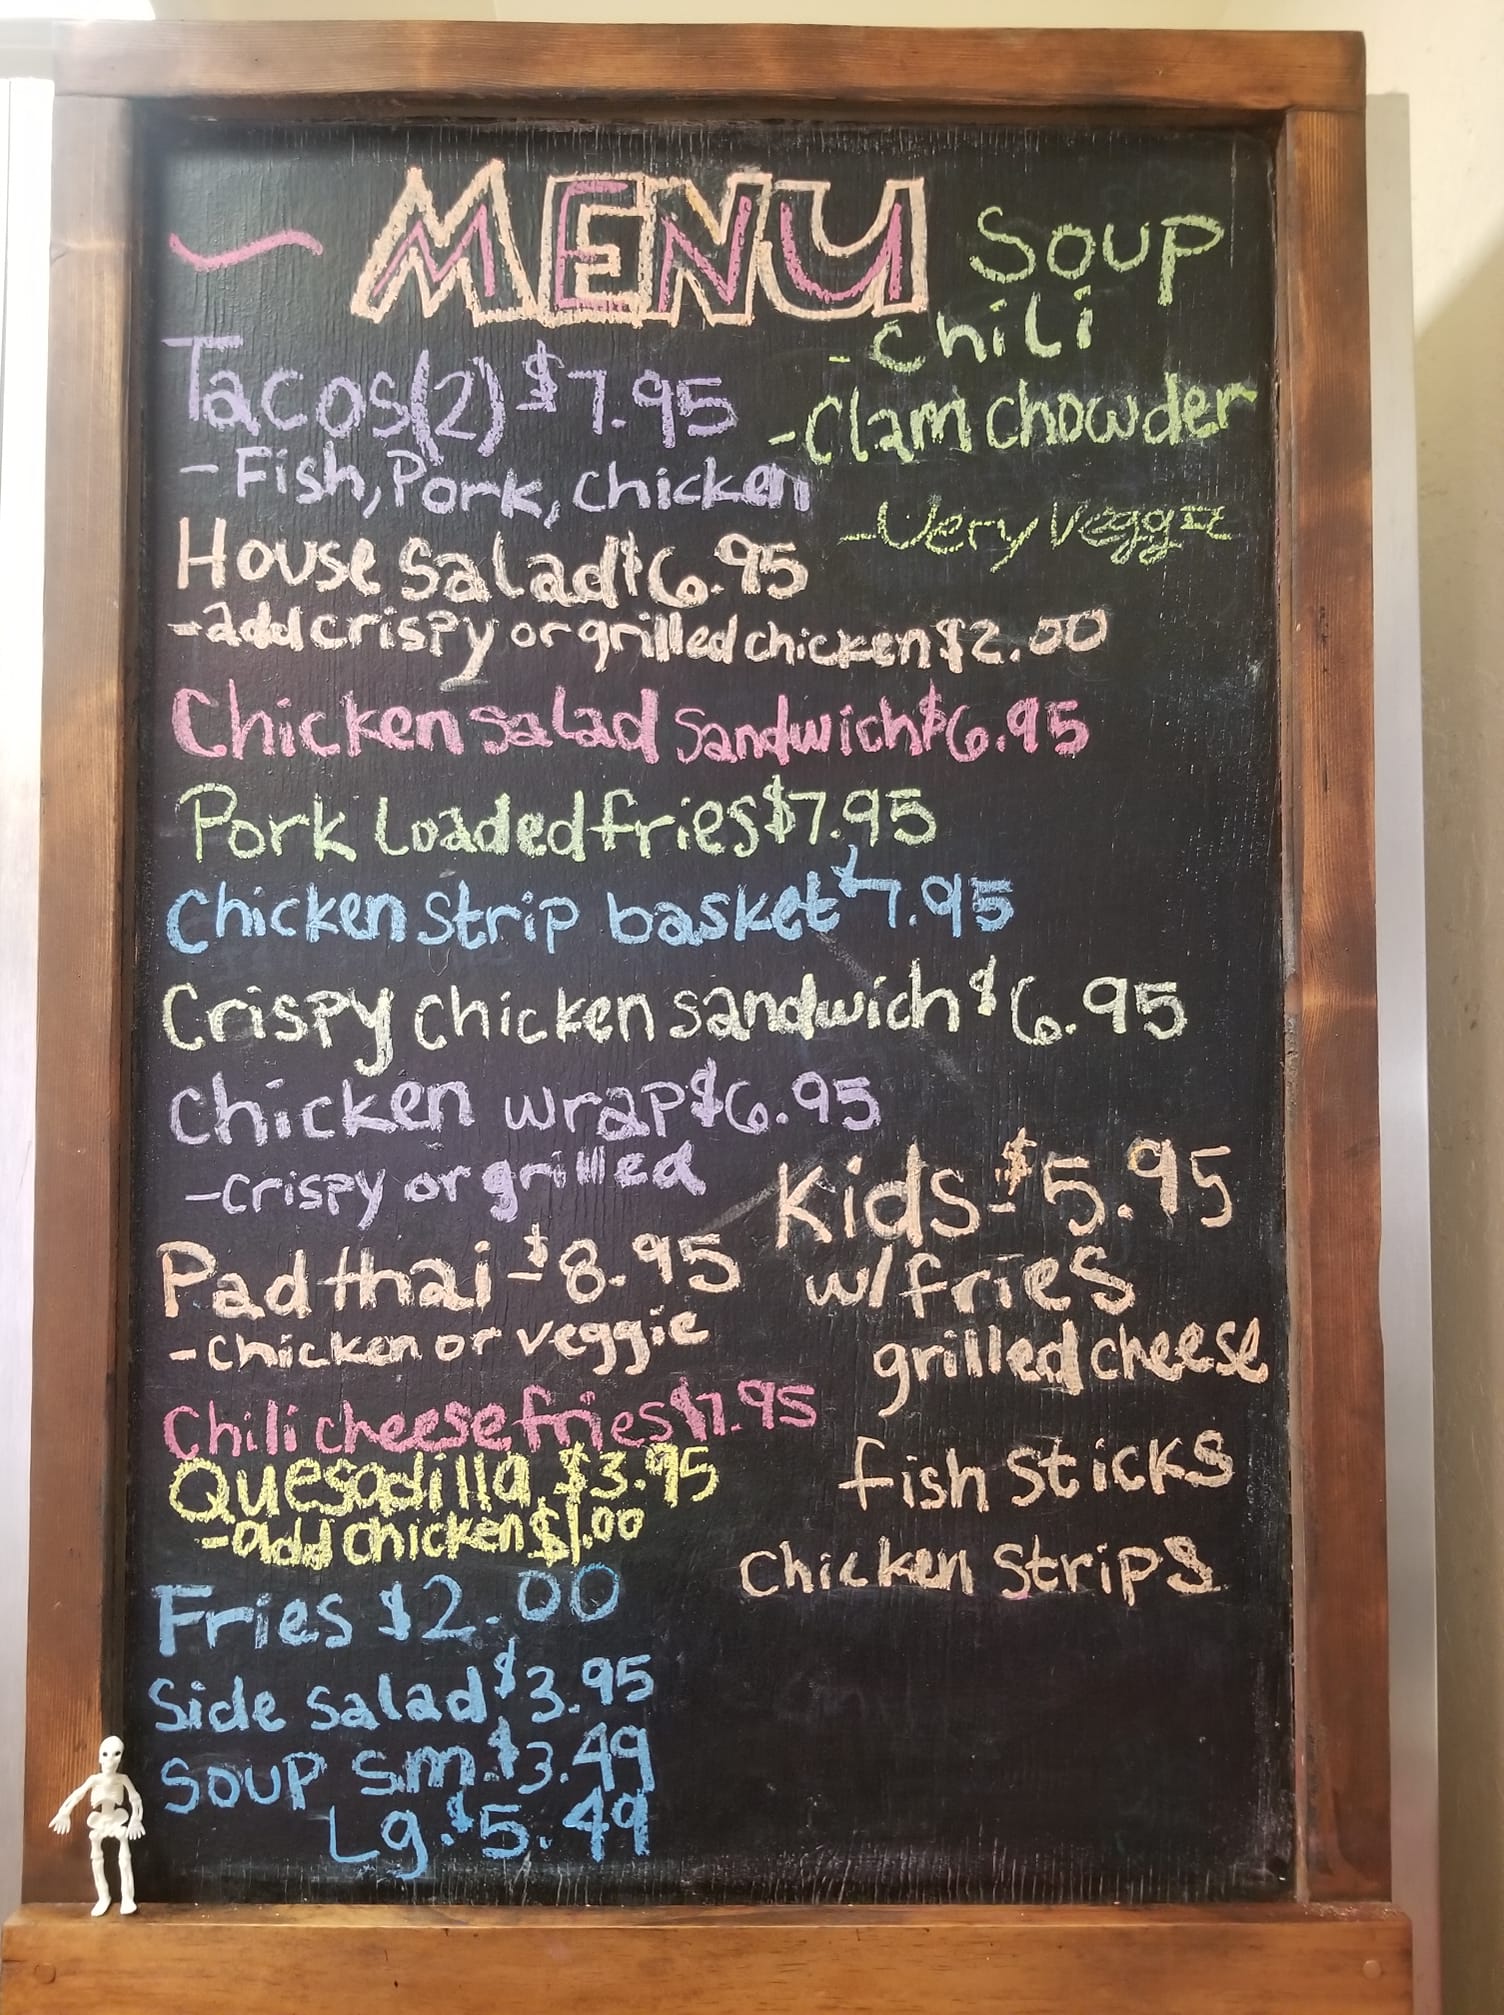 MENU
Tacos(2) $7.95
- Fish, Pork, chicken
House salad $6.95
- add crispy or grilled chicken $2.00
Chicken salad sandwich $6.95
Pork Loaded fries $7.95
Chicken strip basket $7.95
Crispy chicken sandwich $6.95
Chicken wrap $6.95
- crispy or grilled
Pad thai - $8.95
- chicken or veggie
Chili cheese fries $7.95
Quesadilla $3.95
- add chicken $1.00
Fries $2.00
Side salad $3.95
Soup sm $3.49
Lg. $5.49
Soup
- Chili
- Clam chowder
- Very Veggie
Kids - $5.95
w/ fries
grilled cheese
fish sticks
chicken strips